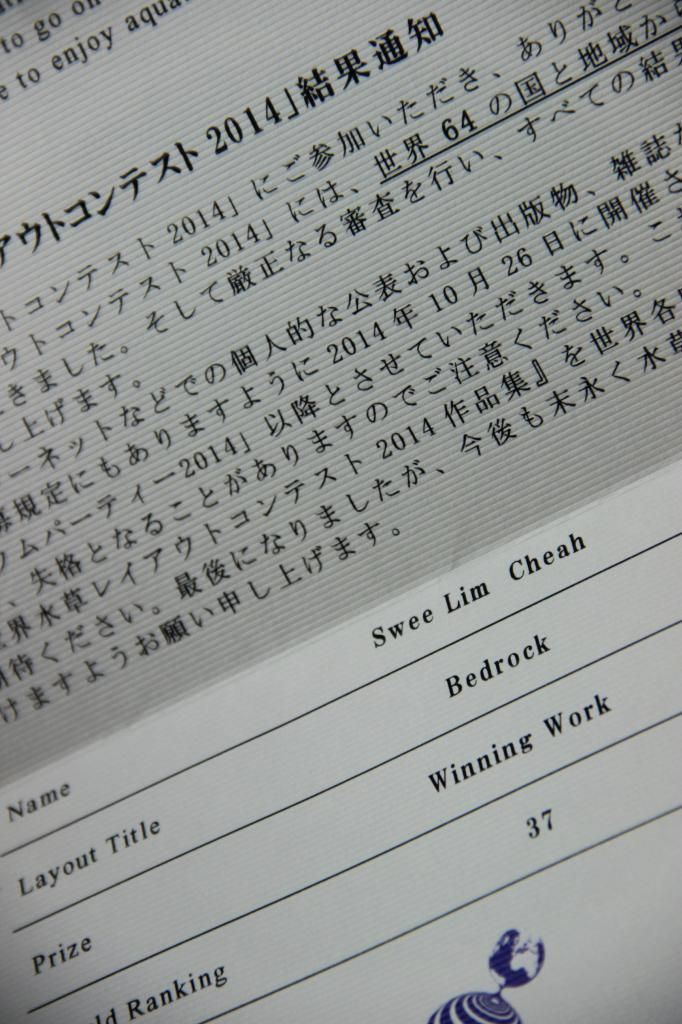 to go on
e to enjoy aqua
アウトコンテスト 2014」結果通知
トコンテスト 2014」にご参加いただき、ありがと
ウトコンテスト 2014」には、世界 64 の国と地域から
きました。そして厳正なる審査を行い、すべての結果
し上げます。
ーネットなどでの個人的な公表および出版物、雑誌
募規定にもありますように 2014 年 10 月 26 日に開催さ
ウムパーティー2014」以降とさせていただきます。こ
、失格となることがありますのでご注意ください。
世界水草レイアウトコンテスト 2014 作品集』を世界各
期待ください。最後になりましたが、今後も末永く水草
けますようお願い申し上げます。
Name Swee Lim Cheah
Layout Title Bedrock
Prize Winning Work
ld Ranking 37